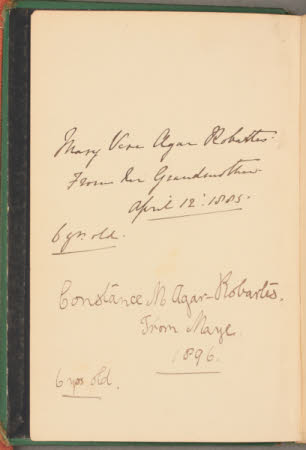 Mary Vere Agar Robartes.
From her Grandmother
April 12: 1885.
6 yrs. old.
Constance M Agar-Robartes.
From Maye
1896.
6 yrs old.